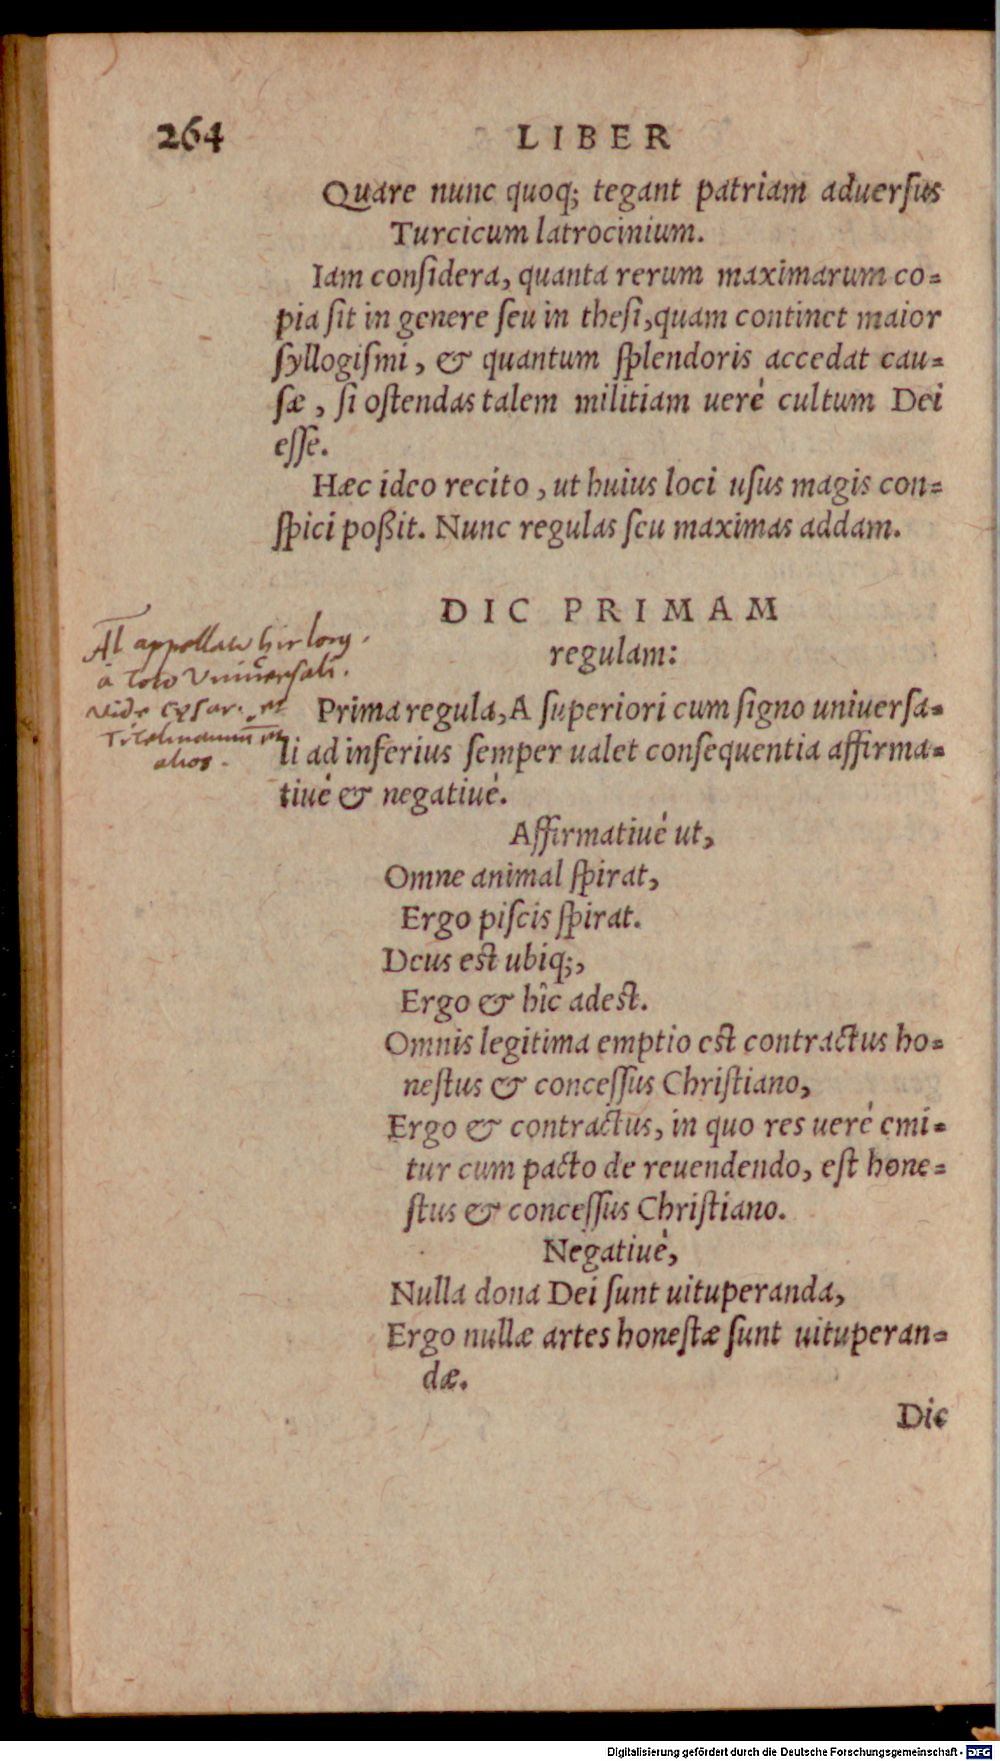 264 LIBER
Quare nunc quoq; tegant patriam aduerſus
Turcicum latrocinium.
Iam conſidera, quanta rerum maximarum co-
pia ſit in genere ſeu in theſi, quam continet maior
ſyllogiſmi, & quantum ſplendoris accedat cau-
ſæ, ſi oſtendas talem militiam uerè cultum Dei
eſſe.
Hæc ideo recito, ut huius loci uſus magis con-
ſpici poßit. Nunc regulas ſeu maximas addam.
DIC PRIMAM
regulam:
Al appellatur hic locus
à toto Vniuersali.
Vide Cęsar. et
Titelmannū et
alios.
Prima regula, A ſuperiori cum ſigno uniuerſa-
li ad inferius ſemper ualet conſequentia affirma-
tiuè & negatiuè.
Affirmatiuè ut,
Omne animal ſpirat,
Ergo piſcis ſpirat.
Deus eſt ubiq;,
Ergo & hîc adeſt.
Omnis legitima emptio eſt contractus ho-
neſtus & conceſſus Chriſtiano,
Ergo & contractus, in quo res uerè emi-
tur cum pacto de reuendendo, eſt hone-
ſtus & conceſſus Chriſtiano.
Negatiuè,
Nulla dona Dei ſunt uituperanda,
Ergo nullæ artes honeſtæ ſunt uituperan-
dæ.
Dic
Digitalisierung gefördert durch die Deutsche Forschungsgemeinschaft - DFG